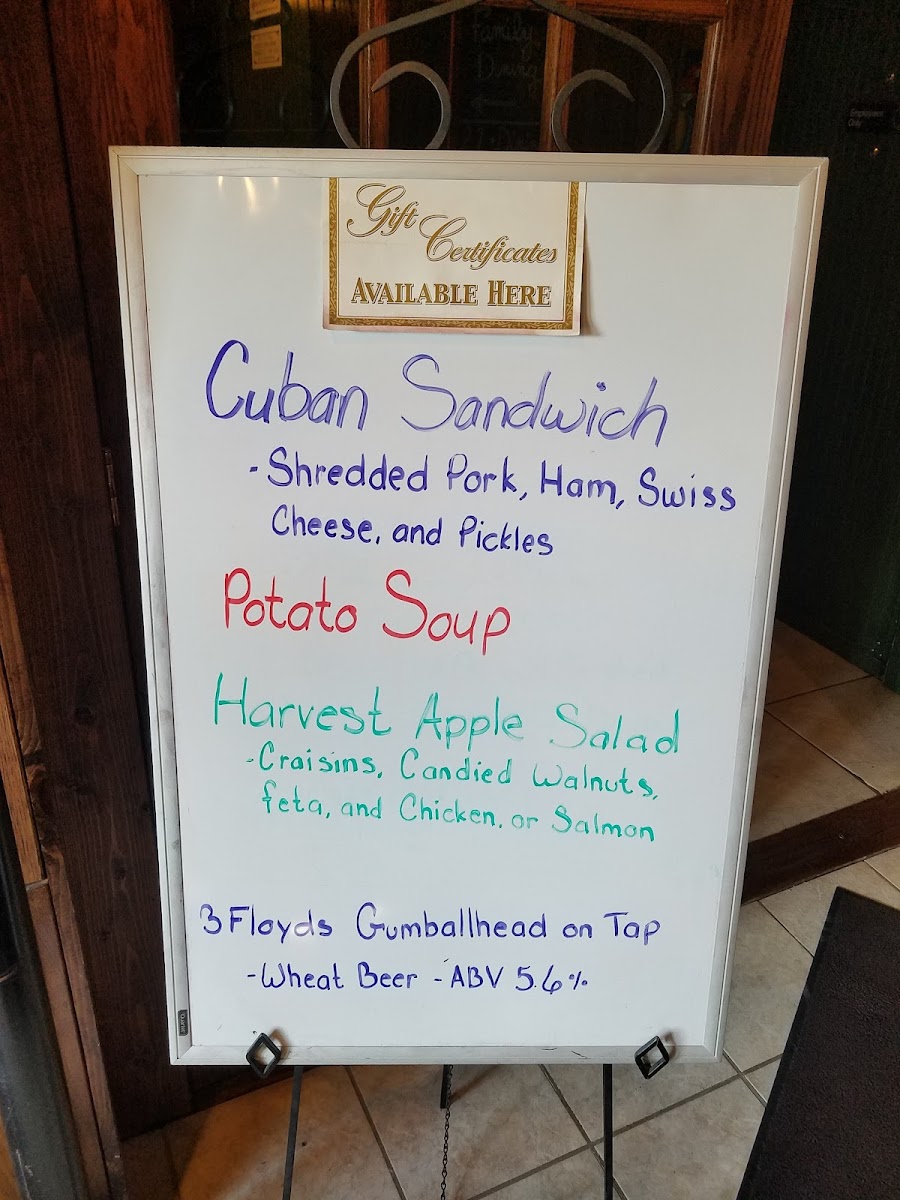 Family
Dining
Employees
Only
Gift
Certificates
AVAILABLE HERE
Cuban Sandwich
-Shredded Pork, Ham, Swiss
Cheese, and Pickles
Potato Soup
Harvest Apple Salad
-Craisins, Candied Walnuts,
feta, and Chicken, or Salmon
3 Floyds Gumballhead on Tap
-Wheat Beer - ABV 5.6%
Quartet